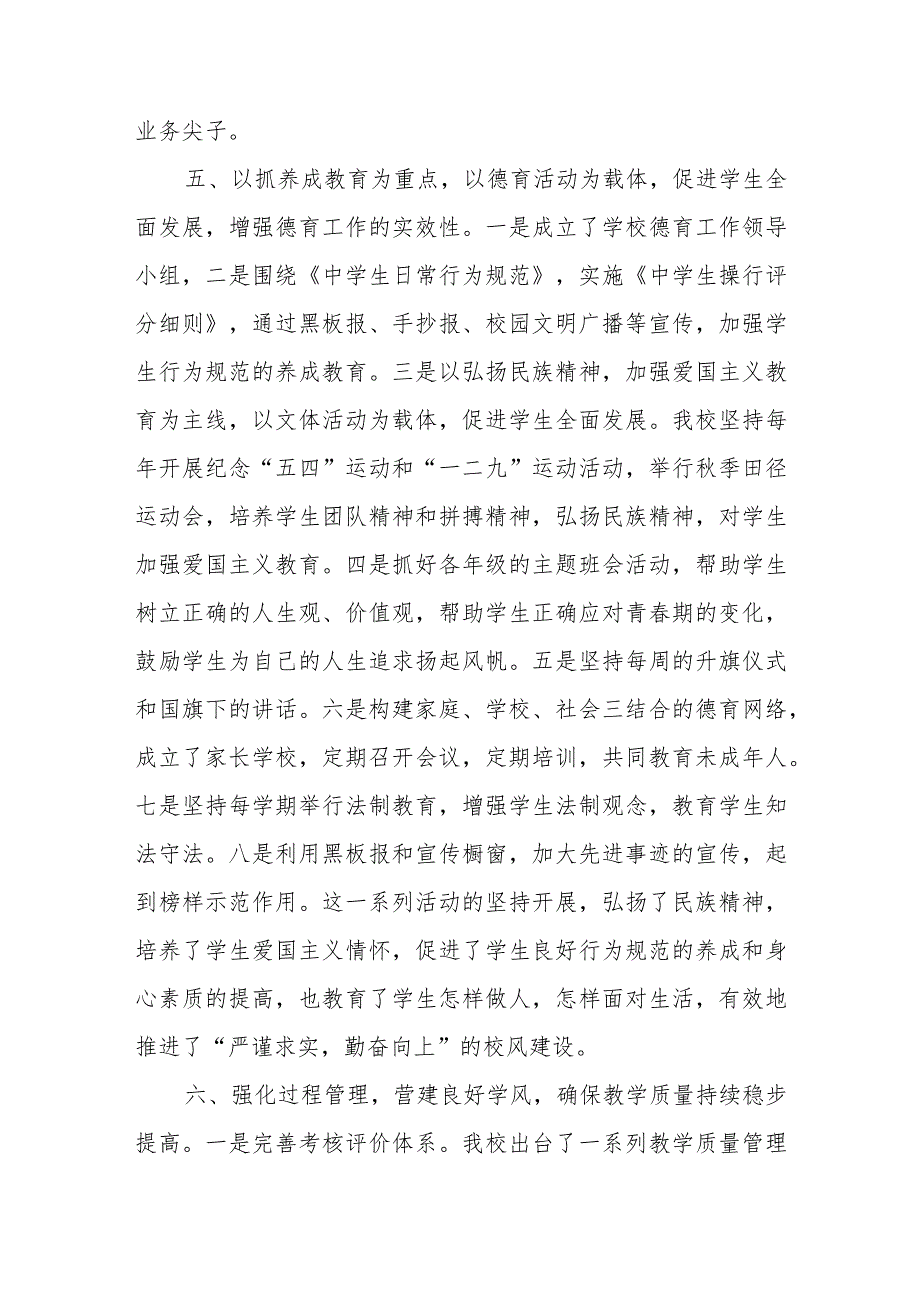 业务尖子。
五、以抓养成教育为重点，以德育活动为载体，促进学生全
面发展，增强德育工作的实效性。一是成立了学校德育工作领导
小组，二是围绕《中学生日常行为规范》，实施《中学生操行评
分细则》，通过黑板报、手抄报、校园文明广播等宣传，加强学
生行为规范的养成教育。三是以弘扬民族精神，加强爱国主义教
育为主线，以文体活动为载体，促进学生全面发展。我校坚持每
年开展纪念“五四”运动和“一二九”运动活动，举行秋季田径
运动会，培养学生团队精神和拼搏精神，弘扬民族精神，对学生
加强爱国主义教育。四是抓好各年级的主题班会活动，帮助学生
树立正确的人生观、价值观，帮助学生正确应对青春期的变化，
鼓励学生为自己的人生追求扬起风帆。五是坚持每周的升旗仪式
和国旗下的讲话。六是构建家庭、学校、社会三结合的德育网络，
成立了家长学校，定期召开会议，定期培训，共同教育未成年人。
七是坚持每学期举行法制教育，增强学生法制观念，教育学生知
法守法。八是利用黑板报和宣传橱窗，加大先进事迹的宣传，起
到榜样示范作用。这一系列活动的坚持开展，弘扬了民族精神，
培养了学生爱国主义情怀，促进了学生良好行为规范的养成和身
心素质的提高，也教育了学生怎样做人，怎样面对生活，有效地
推进了“严谨求实，勤奋向上”的校风建设。
六、强化过程管理，营建良好学风，确保教学质量持续稳步
提高。一是完善考核评价体系。我校出台了一系列教学质量管理